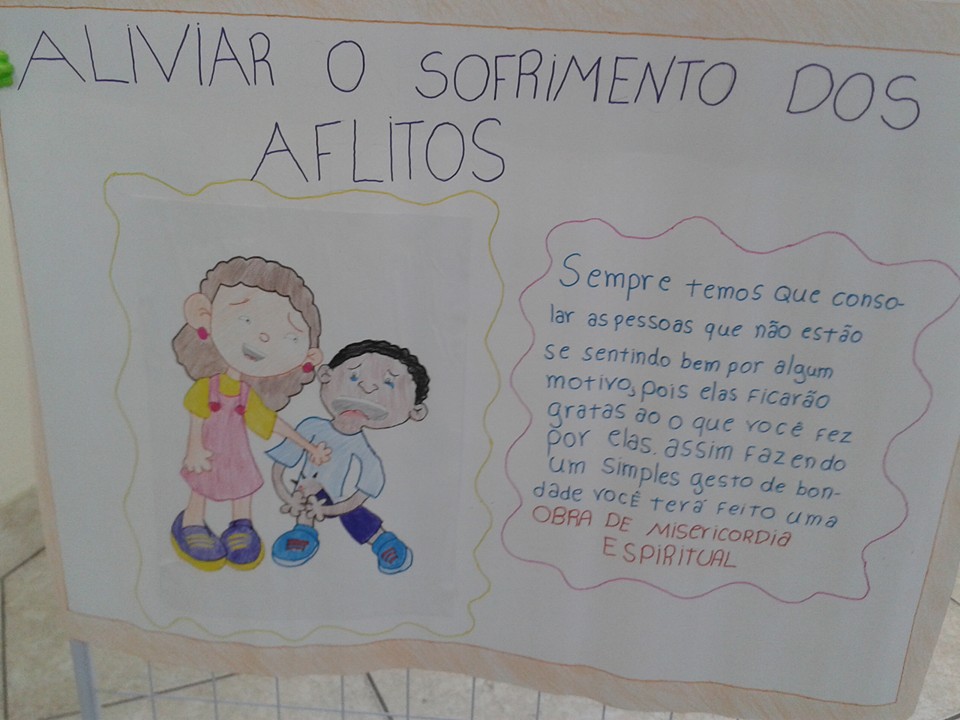 ALIVIAR O SOFRIMENTO DOS
AFLITOS
Sempre temos que conso-
lar as pessoas que não estão
se sentindo bem por algum
motivo, pois elas ficarão
gratas ao o que você fez
por elas. assim fazendo
um simples gesto de bon-
dade você terá feito uma
OBRA DE MISERICORDIA
ESPIRITUAL